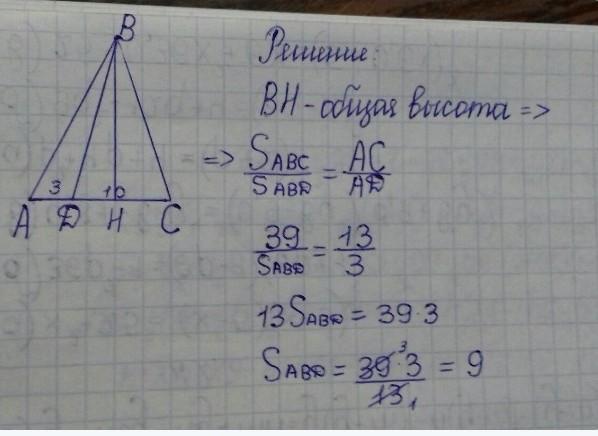 B
3 10
A D H C
Решение:
BH - общая высота =>
=> SABC / SABD = AC / AD
39 / SABD = 13 / 3
13 SABD = 39 · 3
SABD = 39 3 · 3 / 13 1 = 9